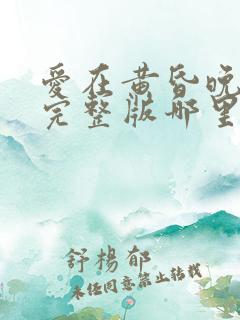 愛在黄昏晚
完整版哪里
舒楊郁
未经同意禁止转载